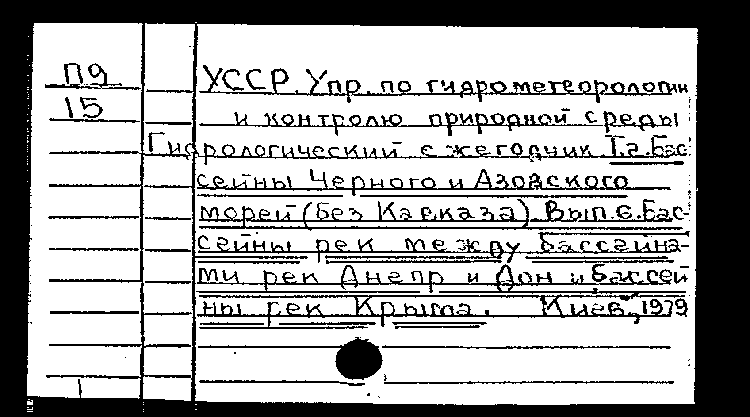 П9
15
УССР. Упр. по гидрометеорологии
и контролю природной среды
Гидрологический ежегодник Т.2. Бас-
сейны Черного и Азовского
морей (без Кавказа). Вып. 6. Бас-
сейны рек между бассейна-
ми рек Днепр и Дон и бассей
ны рек Крыма. Киев, 1979